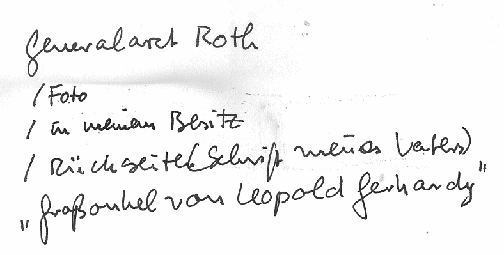 Generalarzt Roth
/ Foto
/ in meinem Besitz
/ Rückseite (Schrift meines Vaters)
"Großonkel von Leopold Gerhardy"